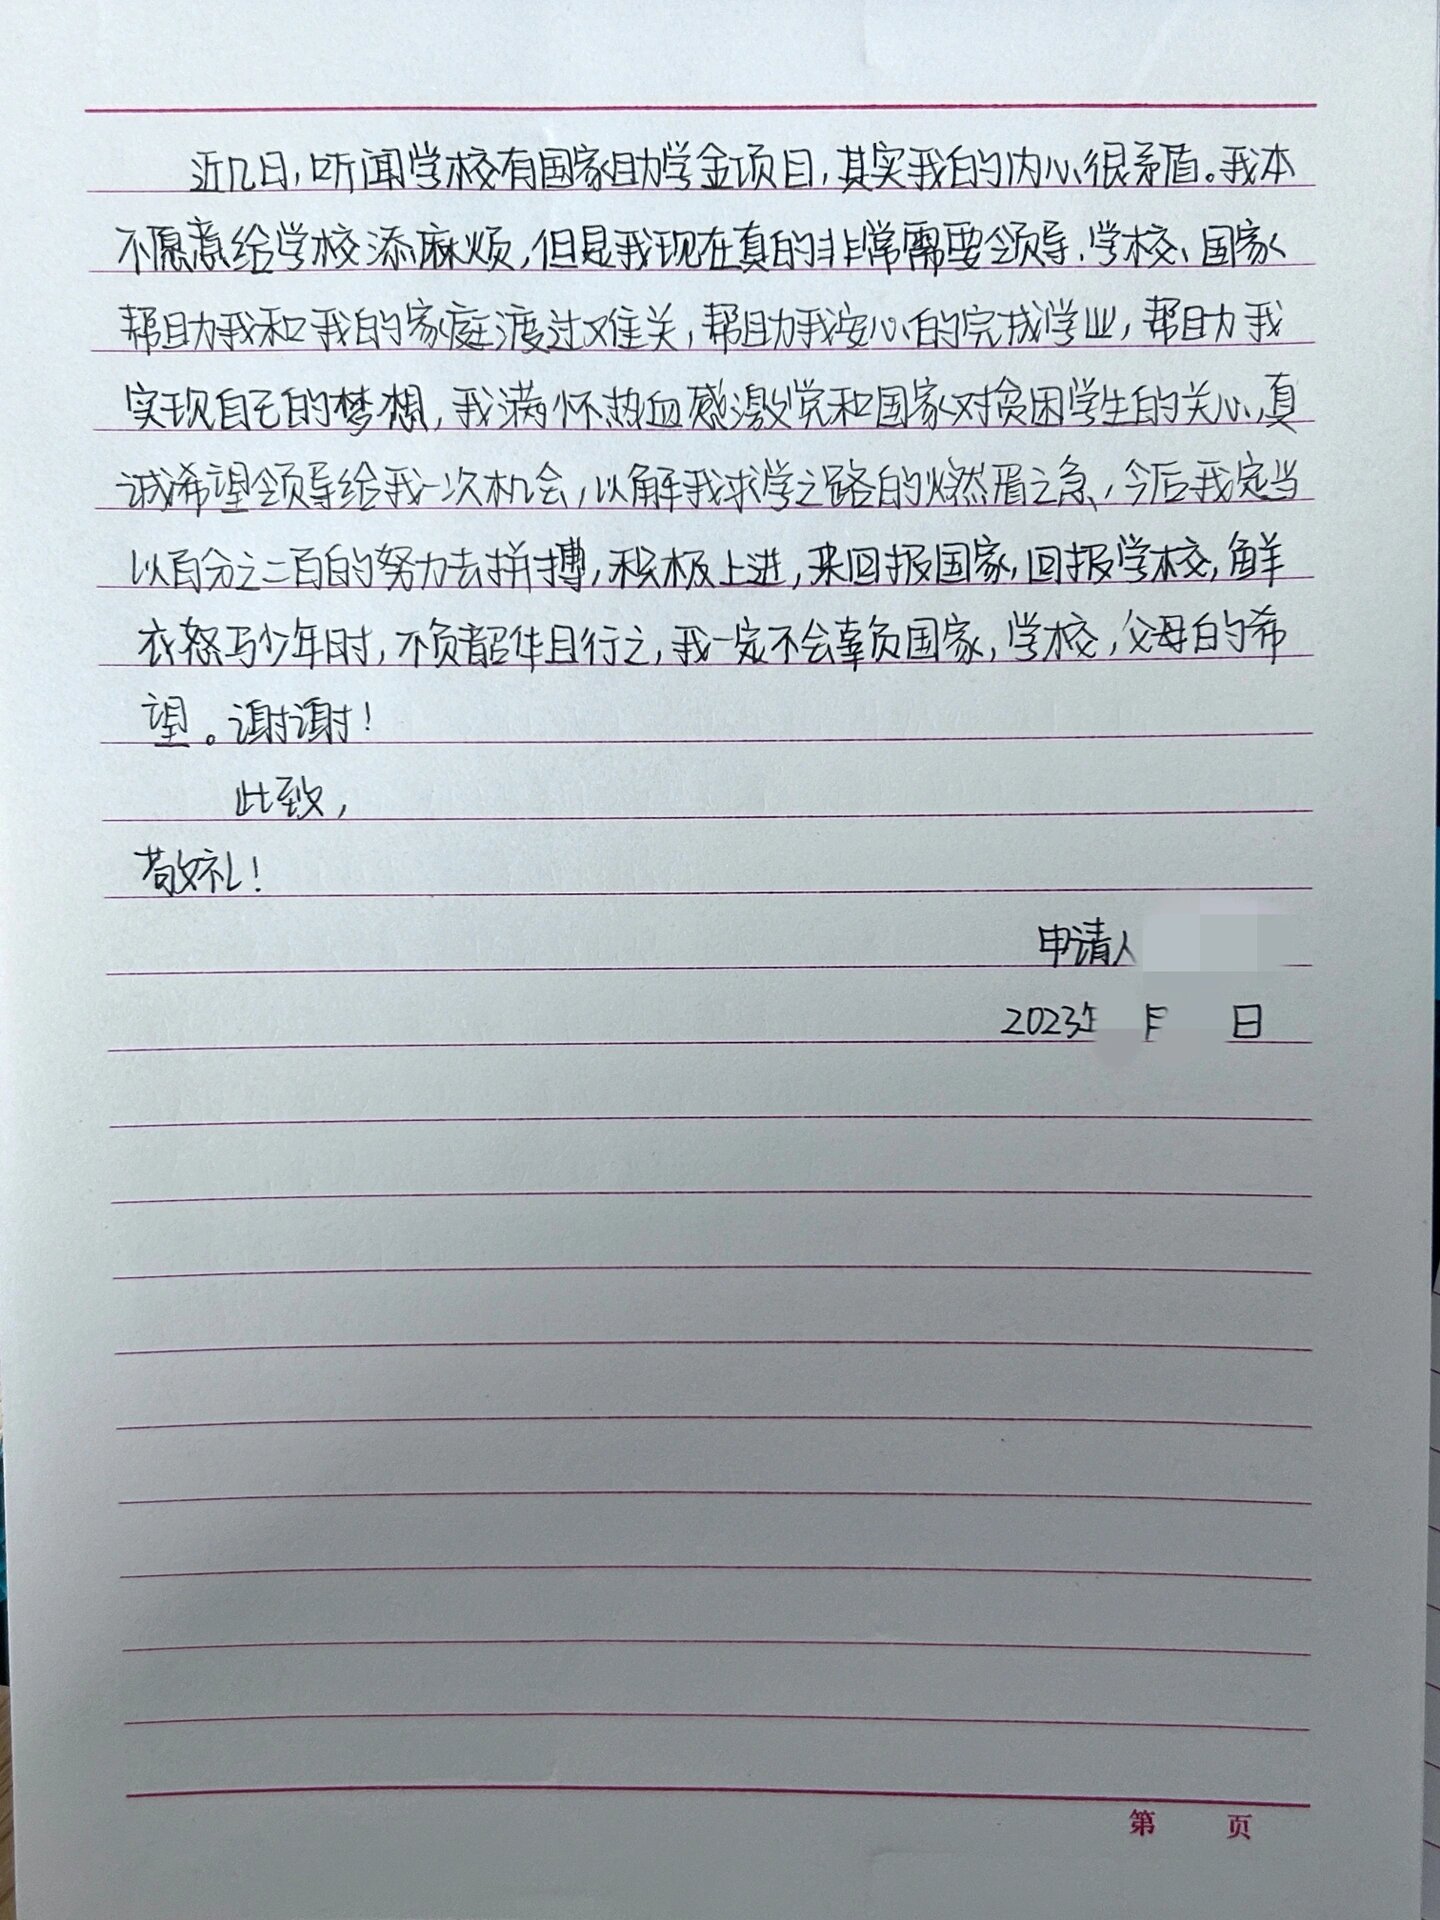 近几日，听闻学校有国家助学金项目，其实我的内心很矛盾。我本
不愿意给学校添麻烦，但是我现在真的非常需要领导、学校、国家
帮助我和我的家庭渡过难关，帮助我安心的完成学业，帮助我
实现自己的梦想，我满怀热血感激党和国家对贫困学生的关心，真
诚希望领导给我一次机会，以解我求学之路的燃眉之急，今后我定当
以百分之二百的努力去拼搏，积极上进，来回报国家，回报学校，鲜
衣怒马少年时，不负韶华且行之，我一定不会辜负国家，学校，父母的希
望。谢谢！
此致，
敬礼！
申请人
2023年 月 日
第 页